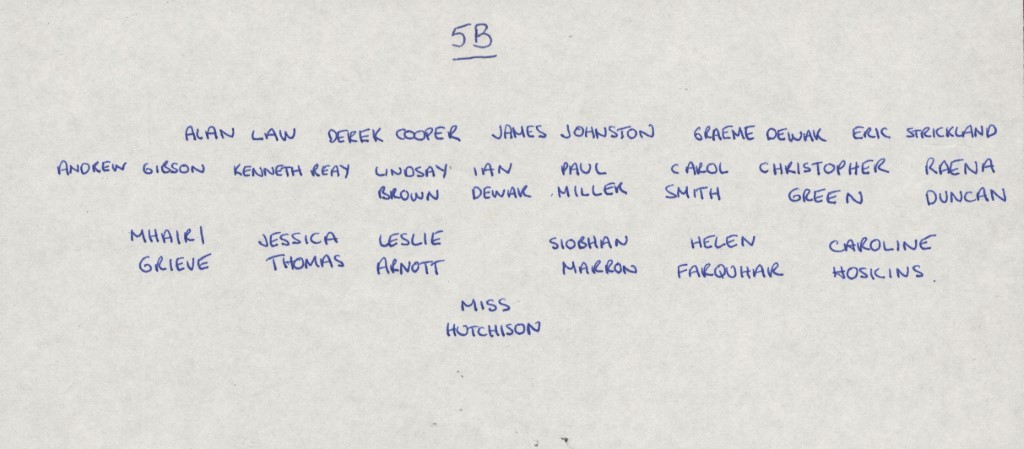 5B
ALAN LAW DEREK COOPER JAMES JOHNSTON GRAEME DEWAR ERIC STRICKLAND
ANDREW GIBSON KENNETH REAY LINDSAY IAN PAUL CAROL CHRISTOPHER RAENA
BROWN DEWAR MILLER SMITH GREEN DUNCAN
MHAIRI JESSICA LESLIE SIOBHAN HELEN CAROLINE
GRIEVE THOMAS ARNOTT MARRON FARQUHAR HOSKINS
MISS
HUTCHISON